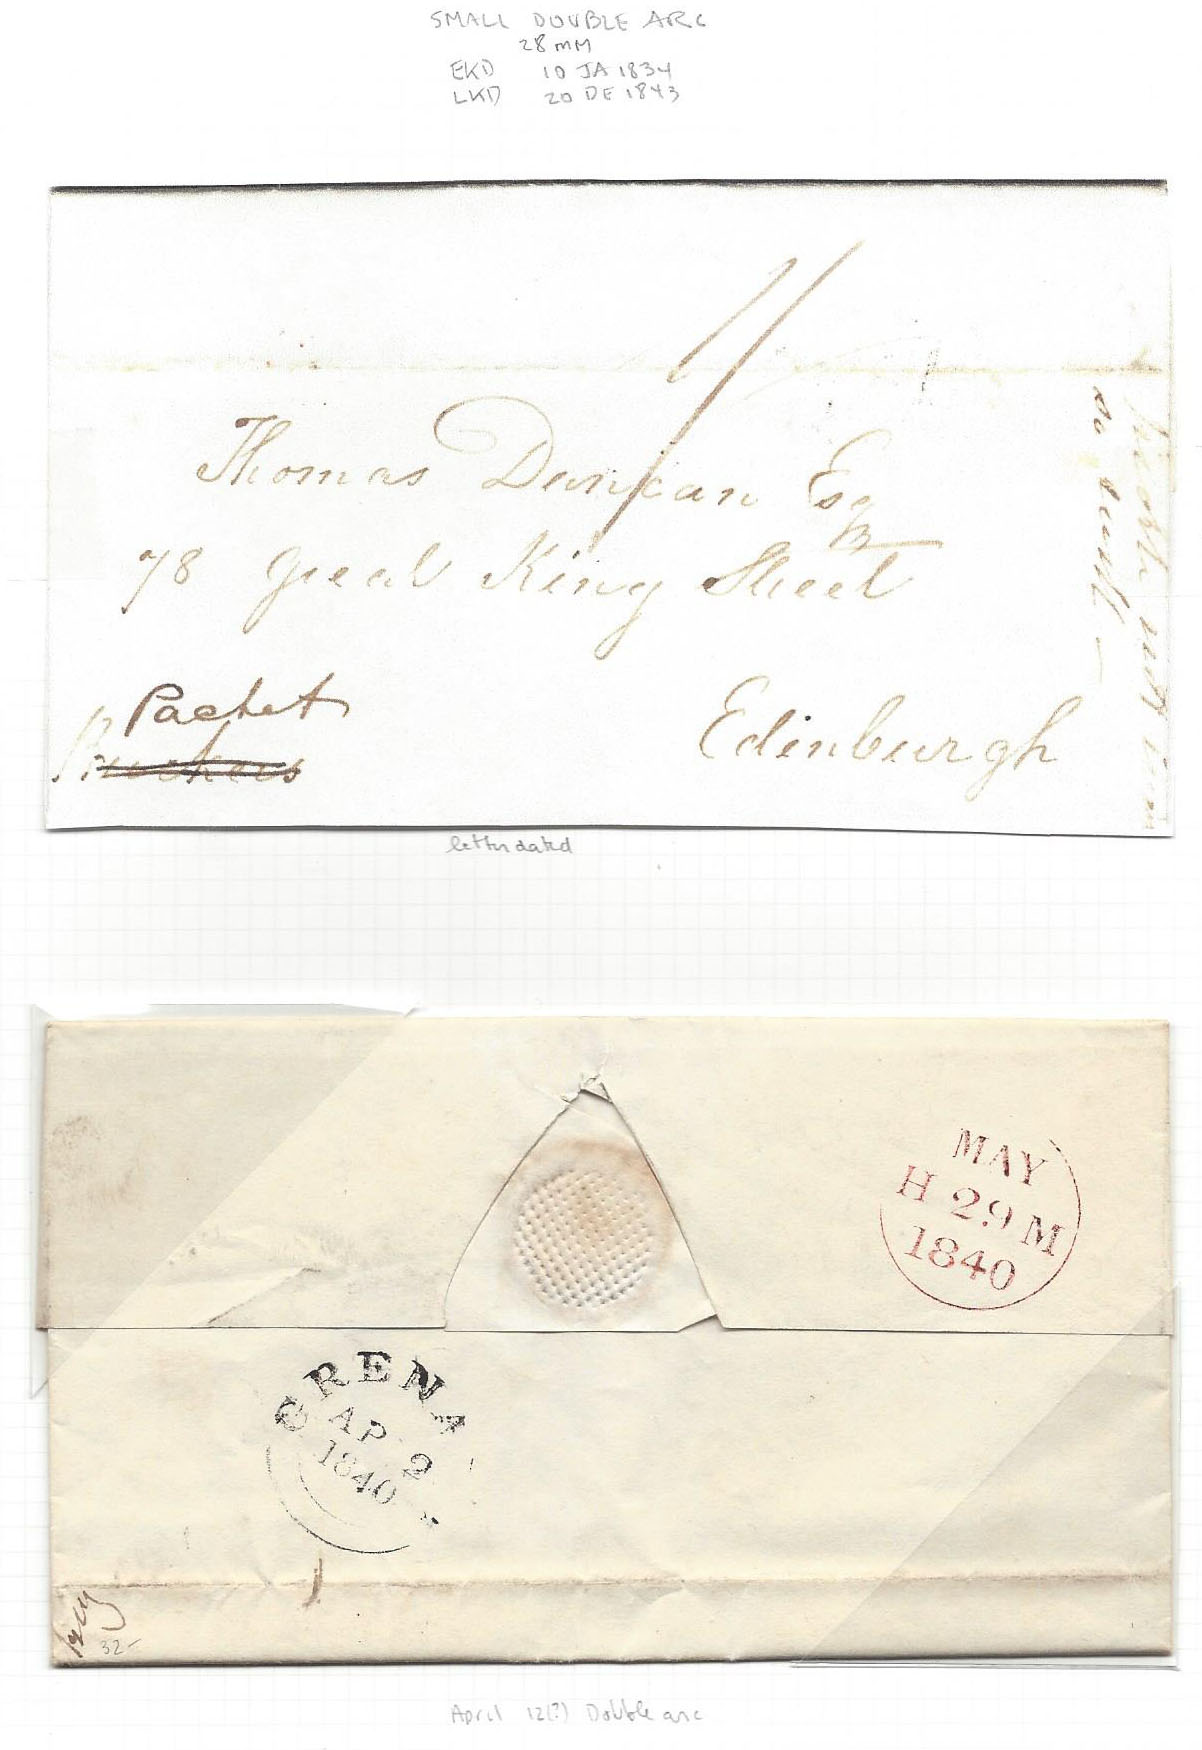 SMALL DOUBLE ARC
28 mm
EKD 10 JA 1834
LKD 20 DE 1843
Thomas Duncan Esq
78 Great King Street
Edinburgh
Packet
letter dated
MAY
H 29 M
1840
GRENA
AP 2
1840
32-
April 12(?) Double arc